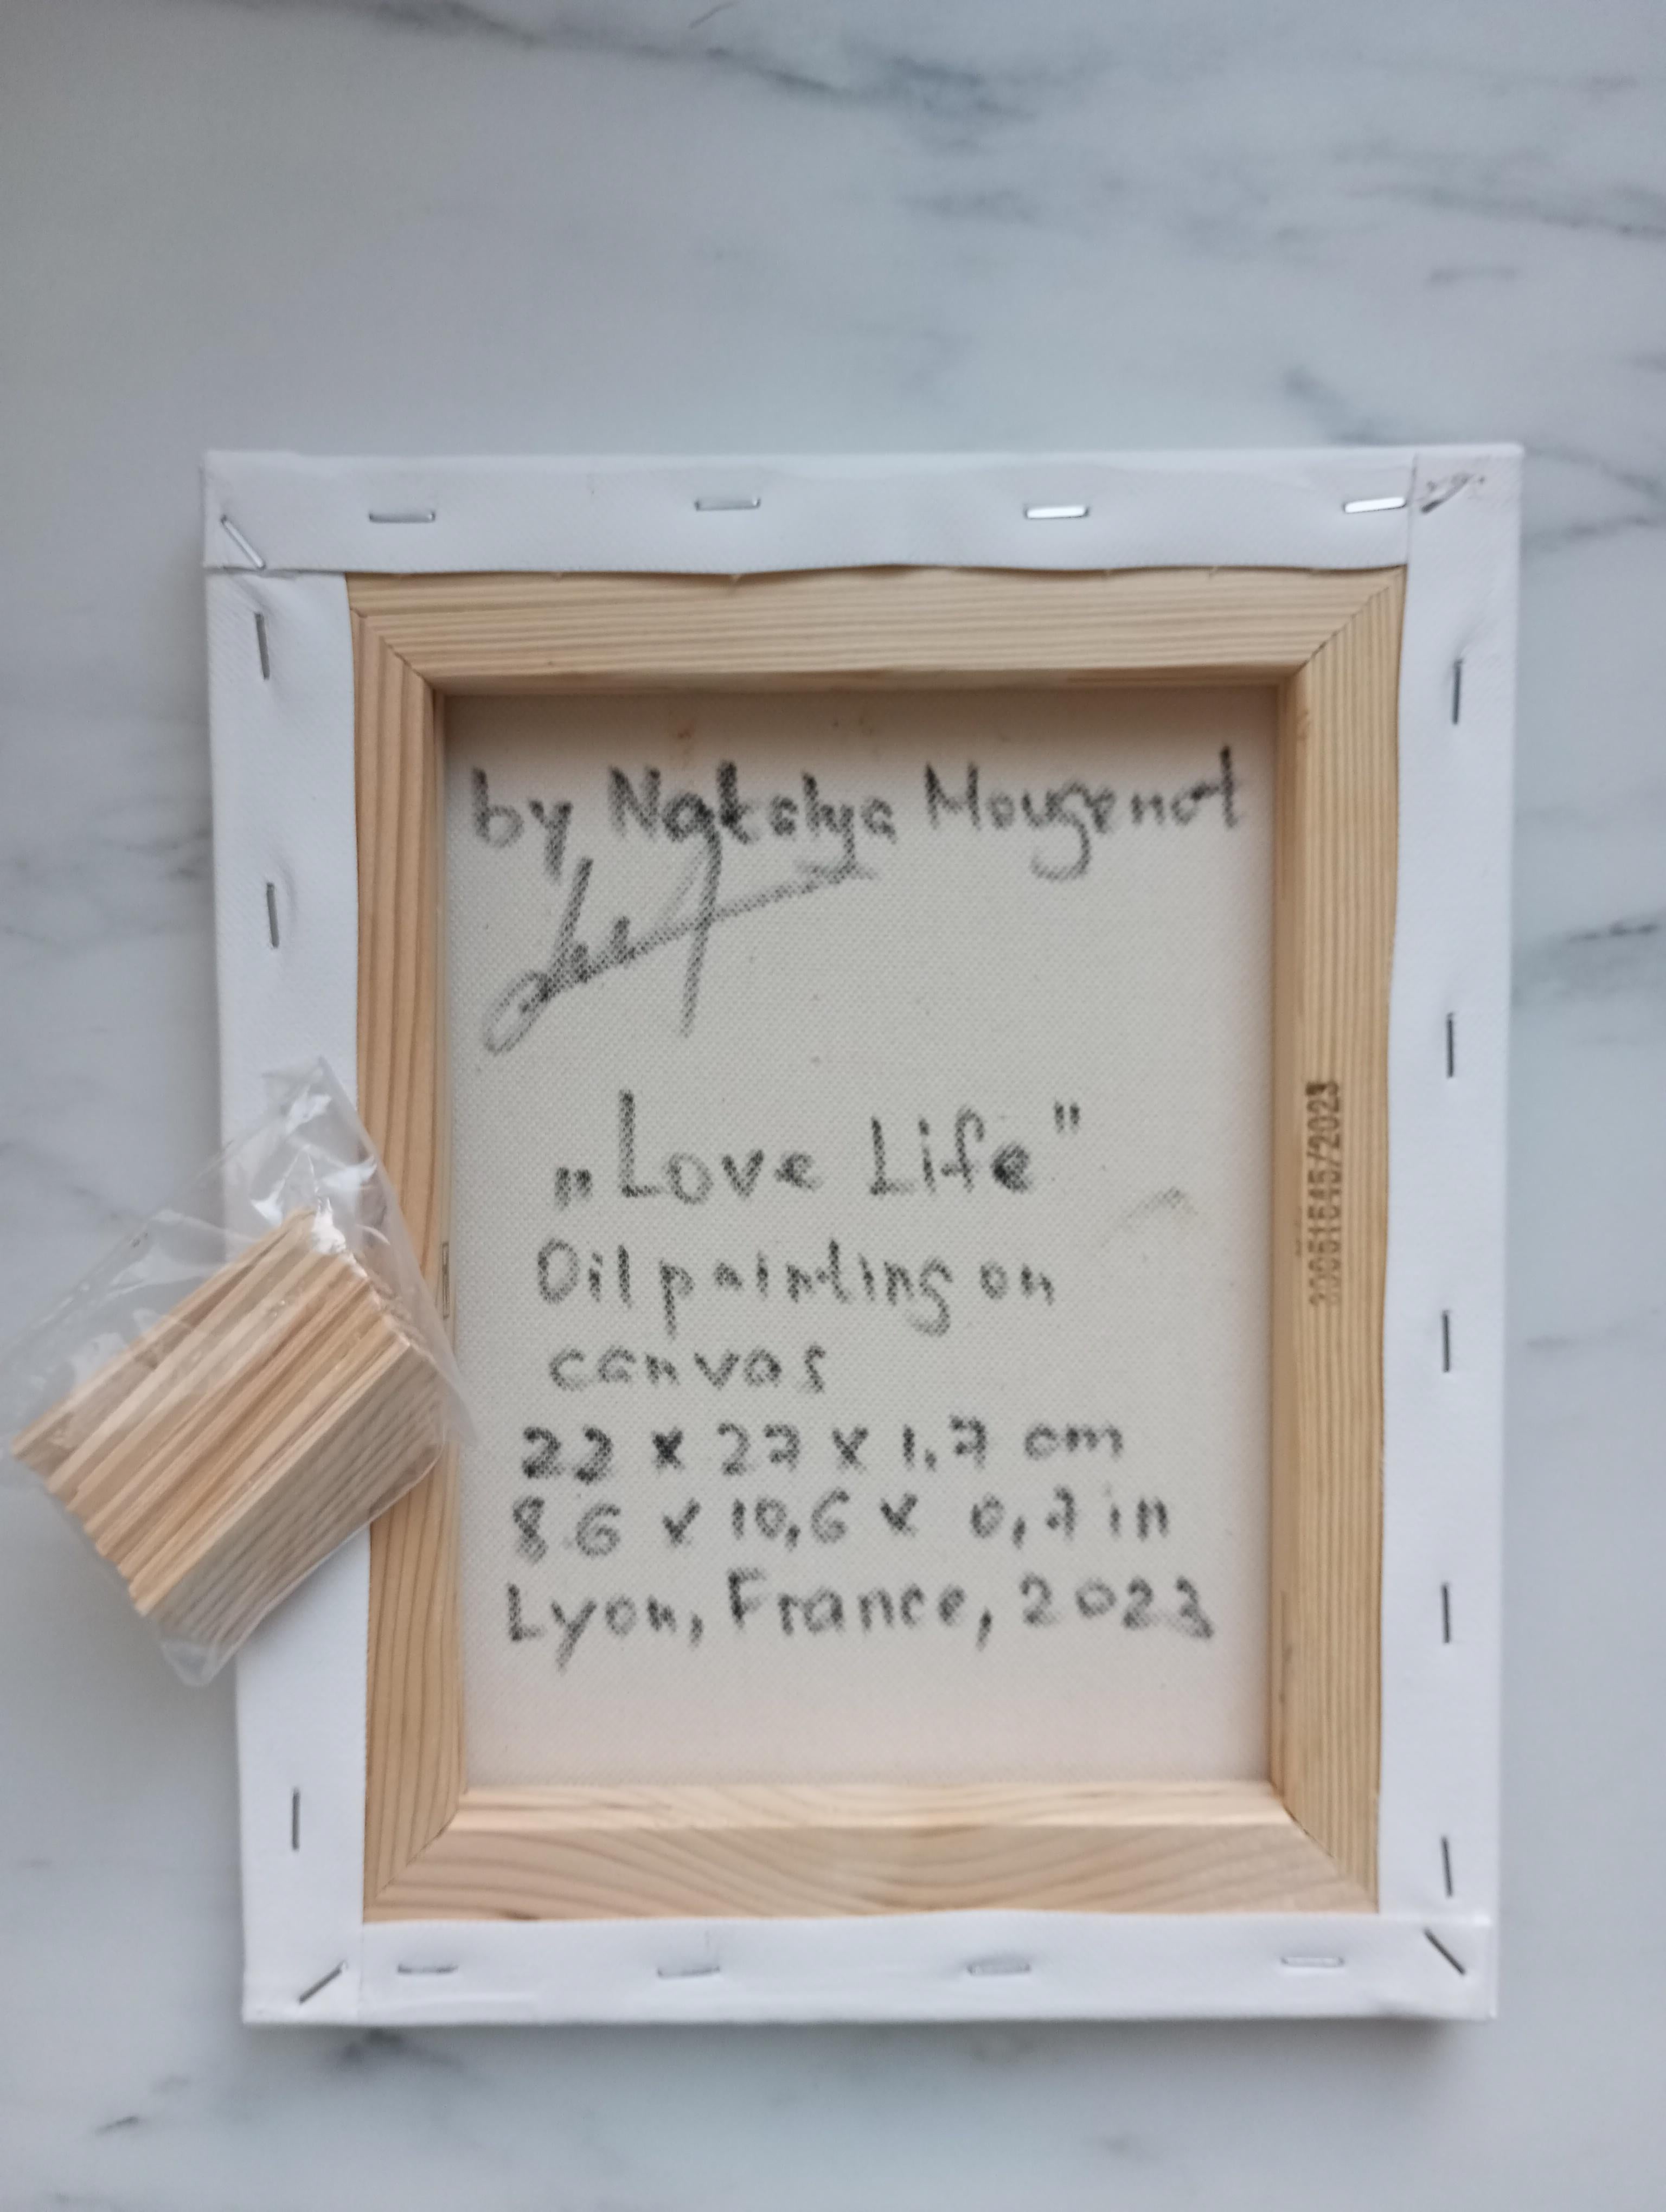 by Natalya Mougenot
„Love Life"
Oil painting on
canvas
22 x 27 x 1,7 cm
8.6 x 10,6 x 0,7 in
Lyon, France, 2023